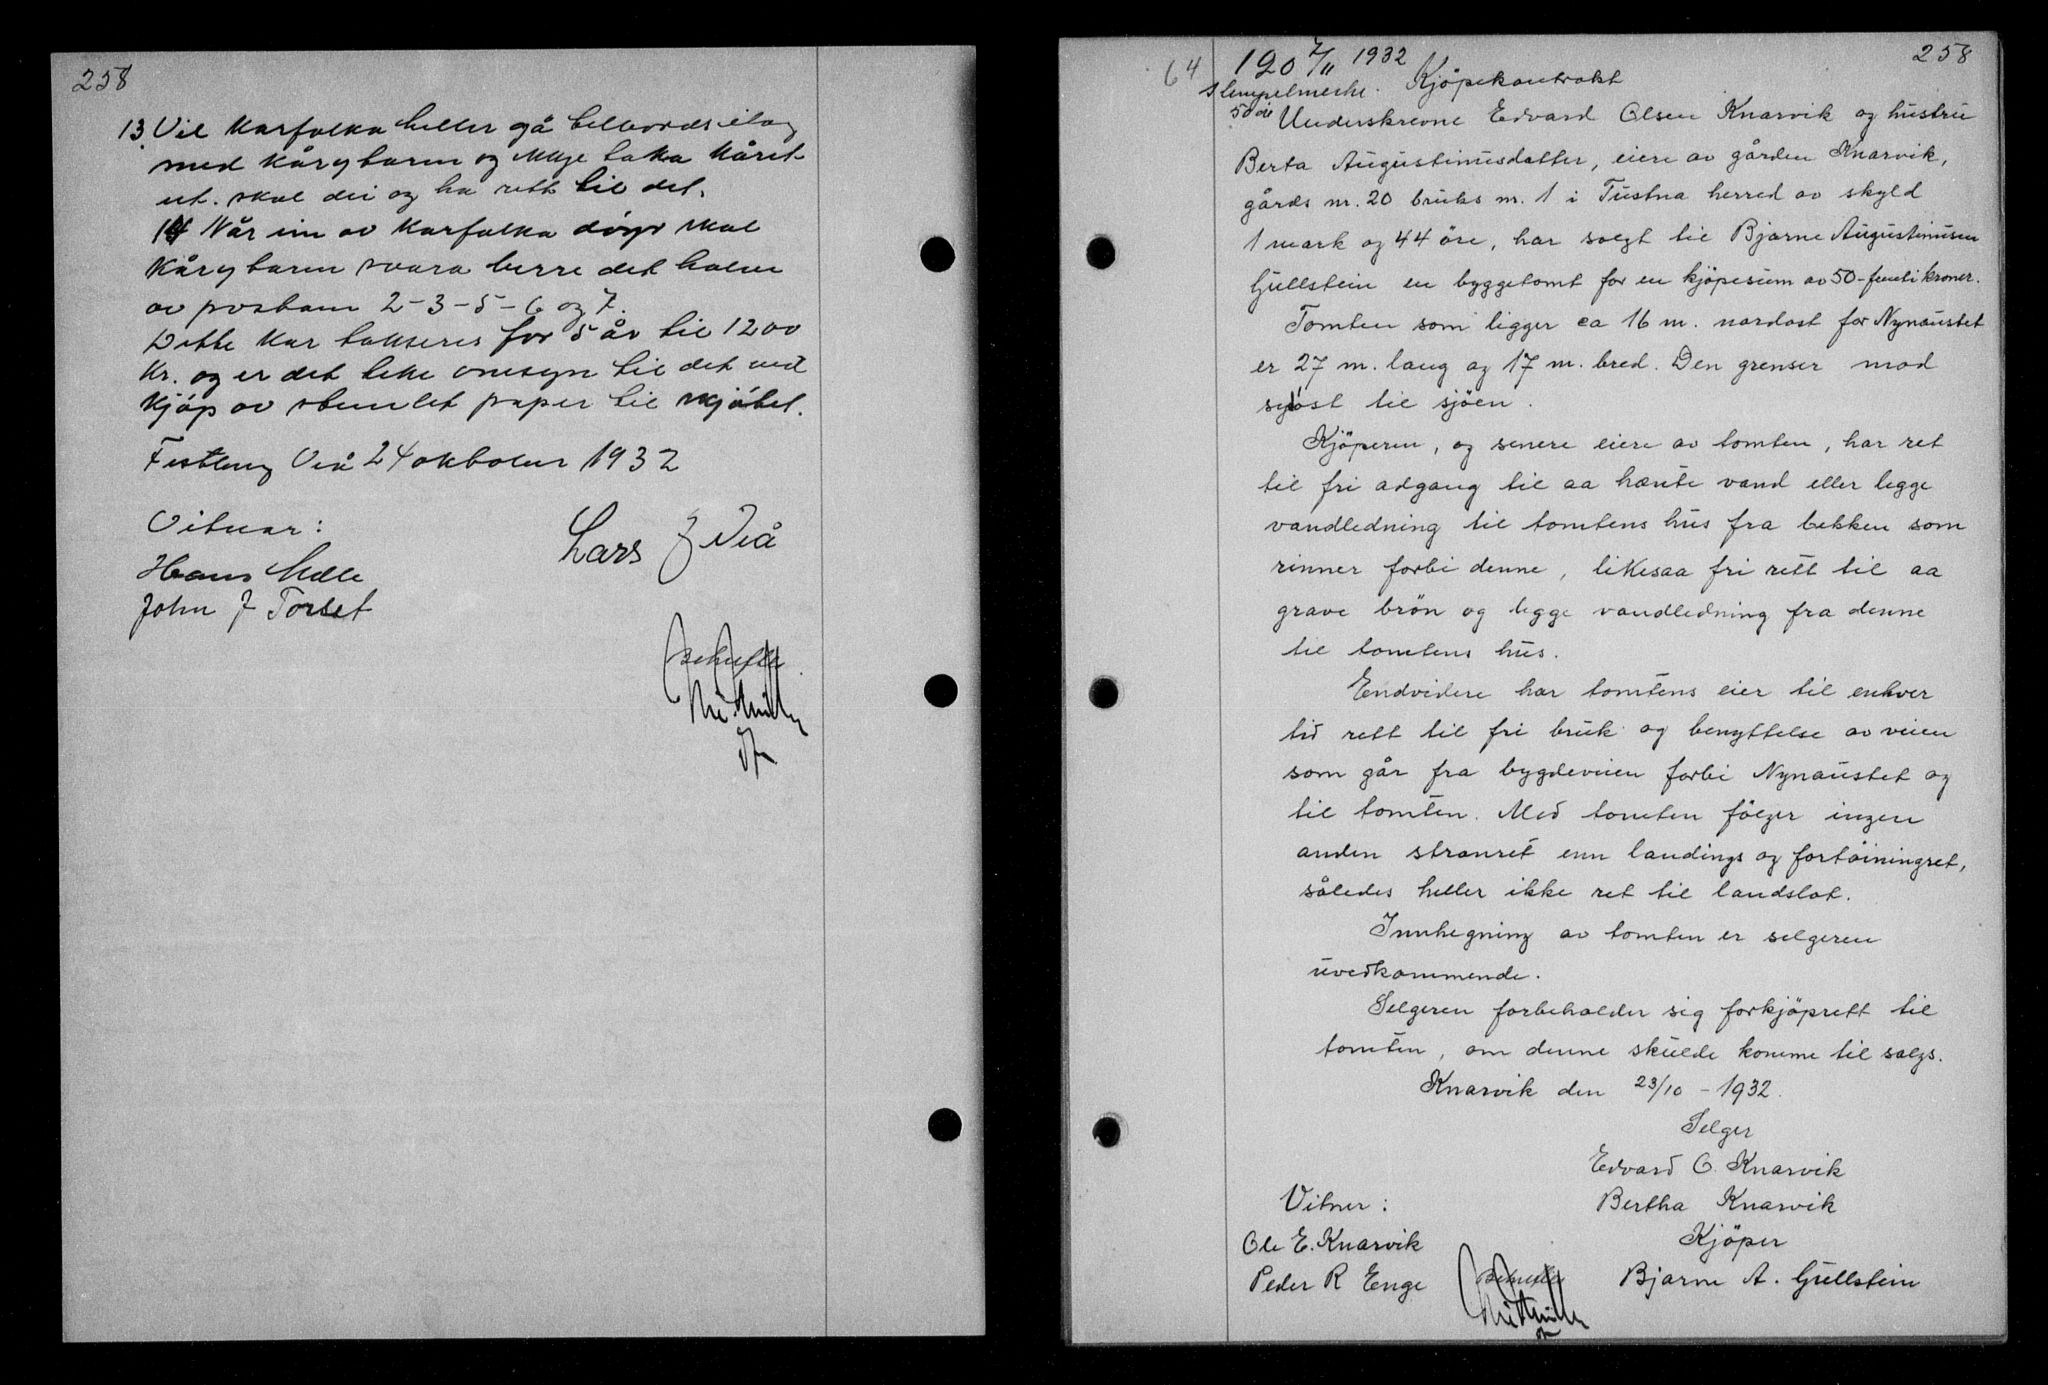 258
13. Vil karfolka heller gå tilbords ilag
med kårytaren og ikkje taka kåret
ut. skal dei og ha rett til det.
14 Når ein av karfolka døyr skal
kårytaren svara berre det halve
av postane 2-3-5-6 og 7.
Dette kar takseres for 5 år til 1200
kr. og er det teke omsyn til det ved
kjøp av stemlet paper til skjøtet.
Festlung Viå 24 oktober 1932
Vitnar:
Lars J Viå
Hans Melle
John J Torset
64
120 7/11 1932
258
Stempelmerke. Kjöpekontrakt
50 øre Underskrevne Edvard Olsen Knarvik og hustru
Berta Augustinusdatter, eiere av gården Knarvik,
gårds nr. 20 bruks nr. 1 i Tustna herred av skyld
1 mark og 44 öre, har solgt til Bjarne Augustinusen
Gullstein en byggetomt for en kjöpesum av 50-femti kroner.
Tomten som ligger ca 16 m. nordost for Nynaustet
er 27 m. lang og 17 m. bred. Den grenser mod
sydost til sjöen.
Kjöperen, og senere eiere av tomten, har ret
til fri adgang til aa hænte vand eller legge
vandledning til tomtens hus fra bekken som
rinner forbi denne, likesaa fri rett til aa
grave brön og legge vandledning fra denne
til tomtens hus.
Endvidere har tomtens eier til enhver
tid rett til fri bruk og benyttelse av veien
som går fra bygdeveien forbi Nynaustet og
til tomten. Med tomten fölger ingen
anden stranret enn landings og fortöiningret,
således heller ikke ret til landslot.
Innhegning av tomten er selgeren
uvedkommende.
Selgeren forbeholder sig forkjöprett til
tomten, om denne skulde komme til salgs.
Knarvik den 23/10 - 1932.
Selger
Edvard O. Knarvik
Vitner: Bertha Knarvik
Ole E. Knarvik Kjöper
Peder R Enge Bjarne A. Gullstein